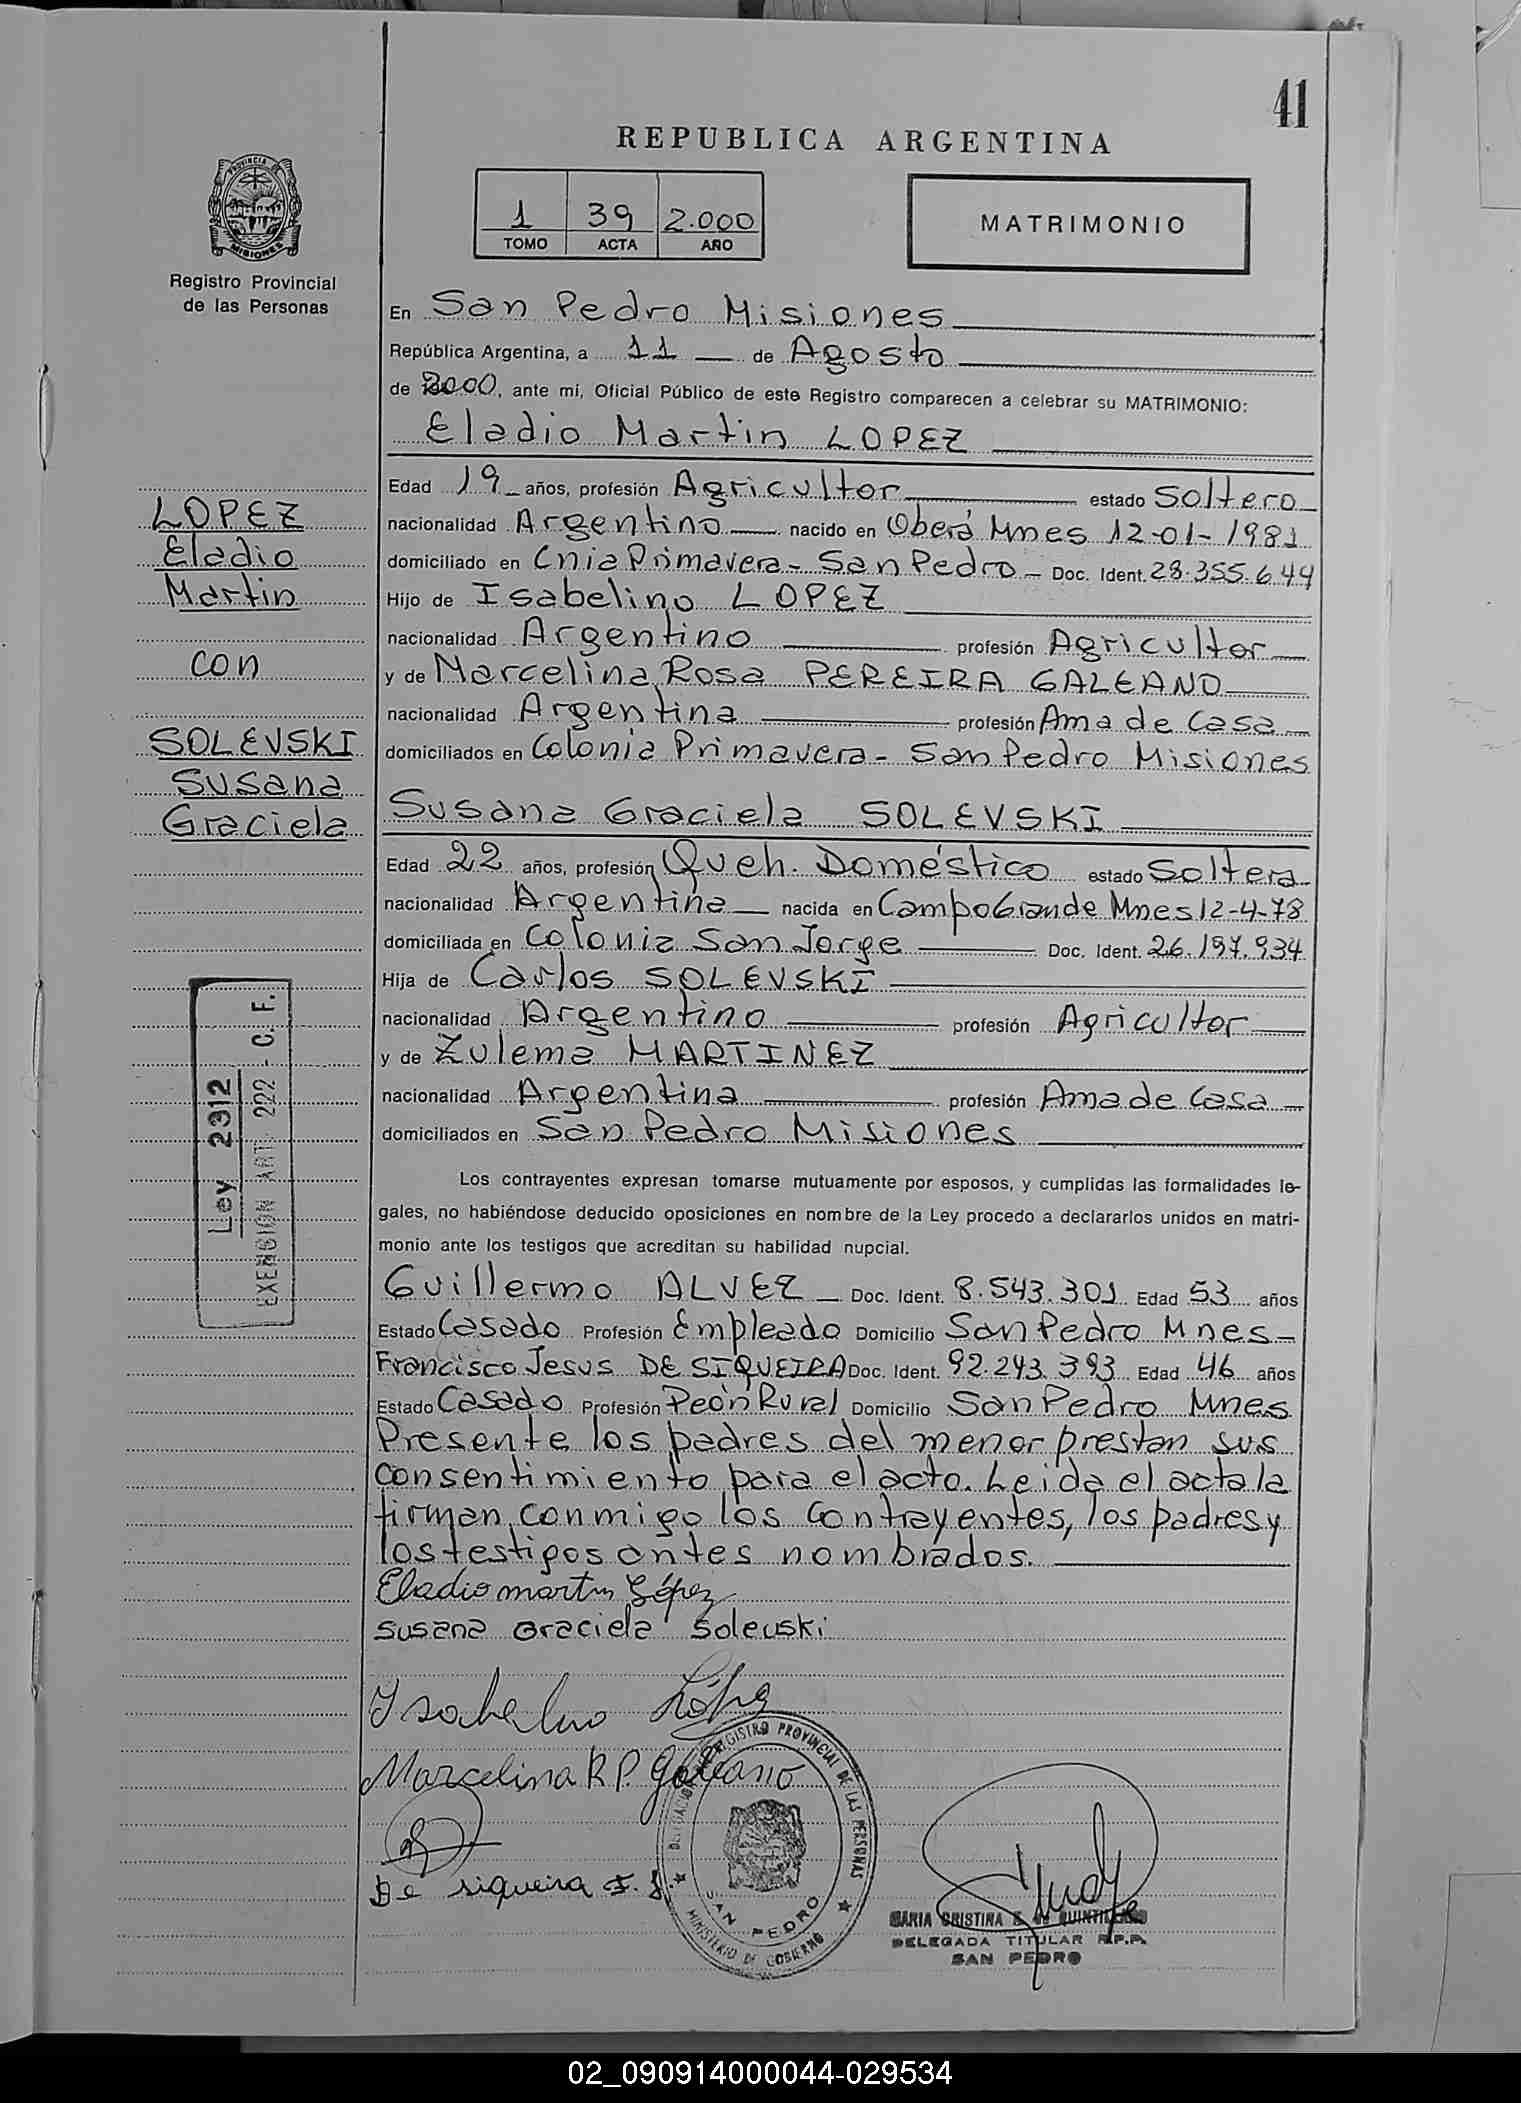 41
REPUBLICA ARGENTINA
1 39 2.000
TOMO ACTA AÑO
MATRIMONIO
PROVINCIA DE
MISIONES
Registro Provincial
de las Personas
En San Pedro Misiones
República Argentina, a 11 de Agosto
de 2000, ante mí, Oficial Público de este Registro comparecen a celebrar su MATRIMONIO:
Eladio Martin LOPEZ
Edad 19 años, profesión Agricultor estado Soltero
nacionalidad Argentino nacido en Oberá Mnes 12-01-1981
domiciliado en Cnia Primavera - San Pedro - Doc. Ident. 28.355.644
Hijo de Isabelino LOPEZ
nacionalidad Argentino profesión Agricultor
y de Marcelina Rosa PEREIRA GALEANO
nacionalidad Argentina profesión Ama de Casa
domiciliados en Colonia Primavera - San Pedro Misiones
LOPEZ
Eladio
Martin
con
SOLEVSKI
Susana
Graciela
Susana Graciela SOLEVSKI
Edad 22 años, profesión Queh. Doméstico estado Soltera
nacionalidad Argentina nacida en Campo Grande Mnes 12-4-78
domiciliada en Colonia San Jorge Doc. Ident. 26.197.934
Hija de Carlos SOLEVSKI
nacionalidad Argentino profesión Agricultor
y de Zulema MARTINEZ
nacionalidad Argentina profesión Ama de Casa
domiciliados en San Pedro Misiones
Ley 2312
EXENCION ART. 222 - C. F.
Los contrayentes expresan tomarse mutuamente por esposos, y cumplidas las formalidades le-
gales, no habiéndose deducido oposiciones en nombre de la Ley procedo a declararlos unidos en matri-
monio ante los testigos que acreditan su habilidad nupcial.
Guillermo ALVEZ - Doc. Ident. 8.543.301 Edad 53 años
Estado Casado Profesión Empleado Domicilio San Pedro Mnes -
Francisco Jesus DE SIQUEIRA Doc. Ident. 92.243.393 Edad 46 años
Estado Casado Profesión Peón Rural Domicilio San Pedro Mnes
Presente los padres del menor prestan sus
consentimiento para el acto. Leida el acta la
firman conmigo los contrayentes, los padres y
los testigos antes nombrados.
Eladio martin López
Susana Graciela Solevski
Isabelino López
Marcelina R P. Galeano
De siqueira F. J.
REGISTRO PROVINCIAL DE LAS PERSONAS
SAN PEDRO
MINISTERIO DE GOBIERNO
MARIA CRISTINA
DELEGADA TITULAR R.P.P.
SAN PEDRO
02_090914000044-029534